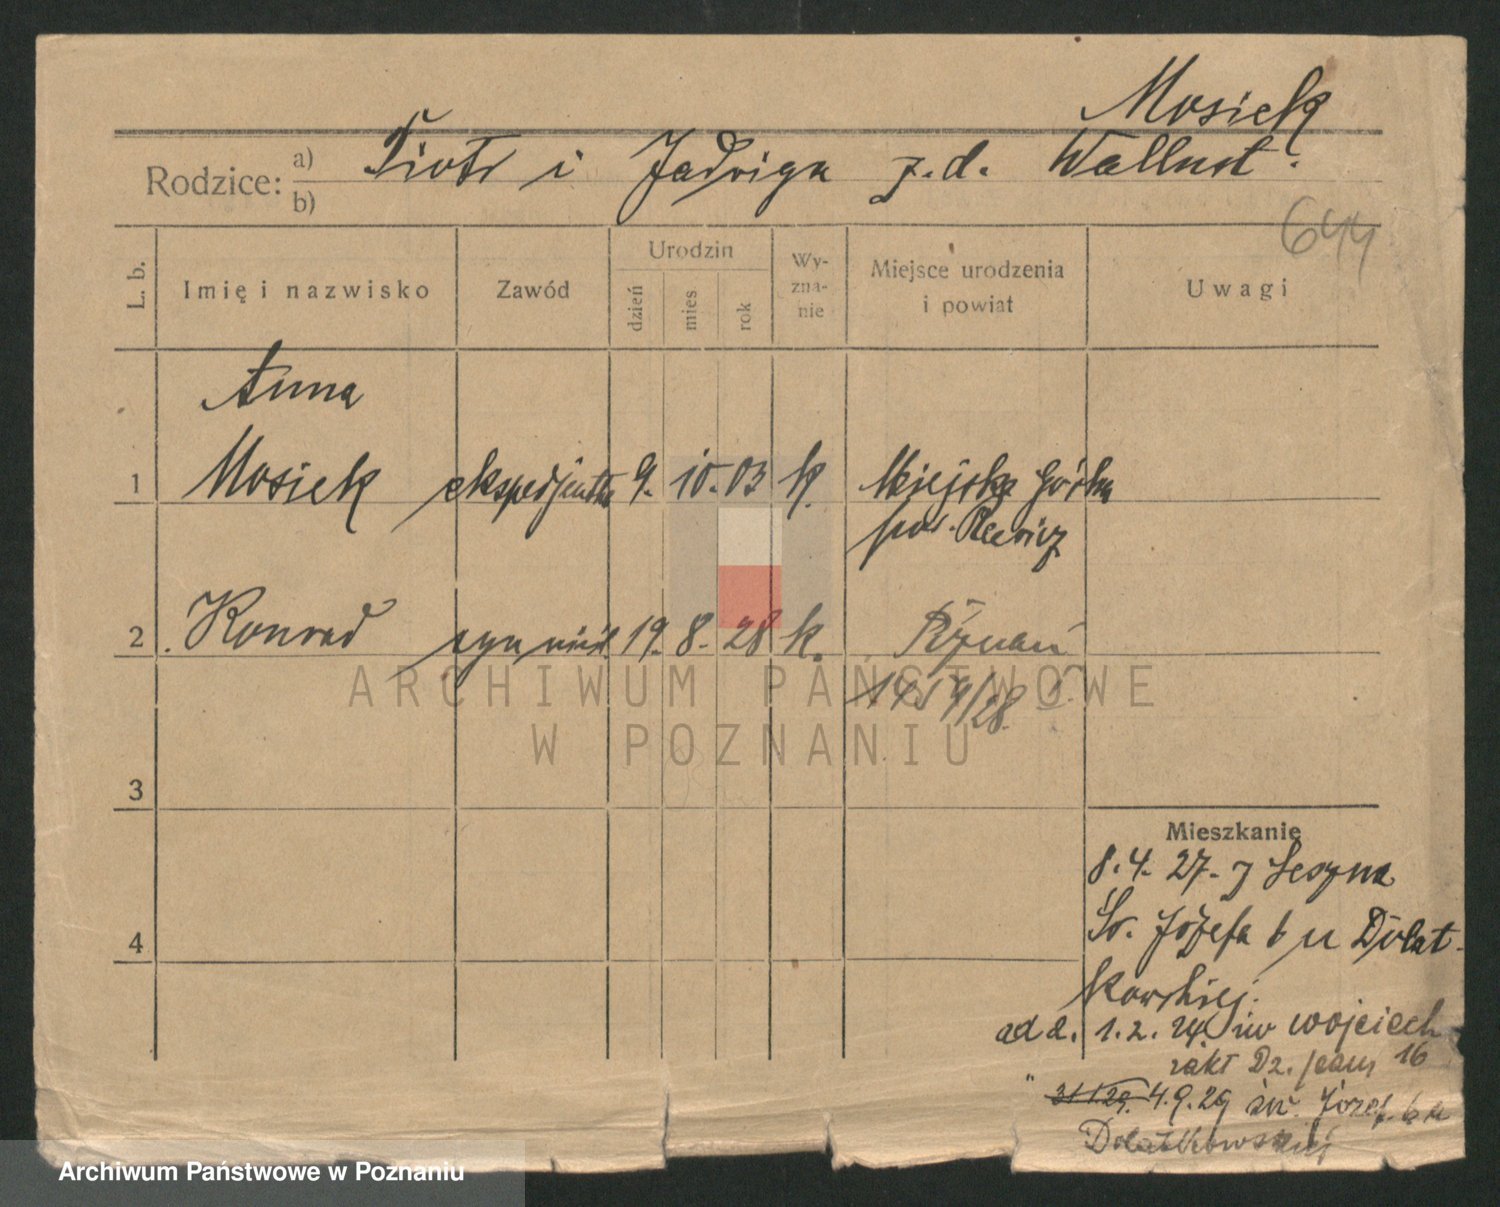 Mosiek
Rodzice: a) Piotr i Jadwiga z.d. Wallust.
b)
644
L. b. Imię i nazwisko Zawód Urodzin dzień mies rok Wy-zna-nie Miejsce urodzenia i powiat Uwagi
Anna
1 Mosiek ekspedjentka 9. 10. 03 k. Miejska Górka
pow. Rawicz
2 Konrad syn nieśl. 19. 8. 28 k. Poznań
1459/28
ARCHIWUM PAŃSTWOWE
W POZNANIU
3
Mieszkanie
8.4. 27. z Leszna
Św. Józefa 6 u Dolat-
4
kowskiej.
ad d. 1.2. św wojciech
zakł Dz. Jezus 16
" 31.1.29. 4.9.29 św. Józef. 6 u
Dolatkowskiej
Archiwum Państwowe w Poznaniu